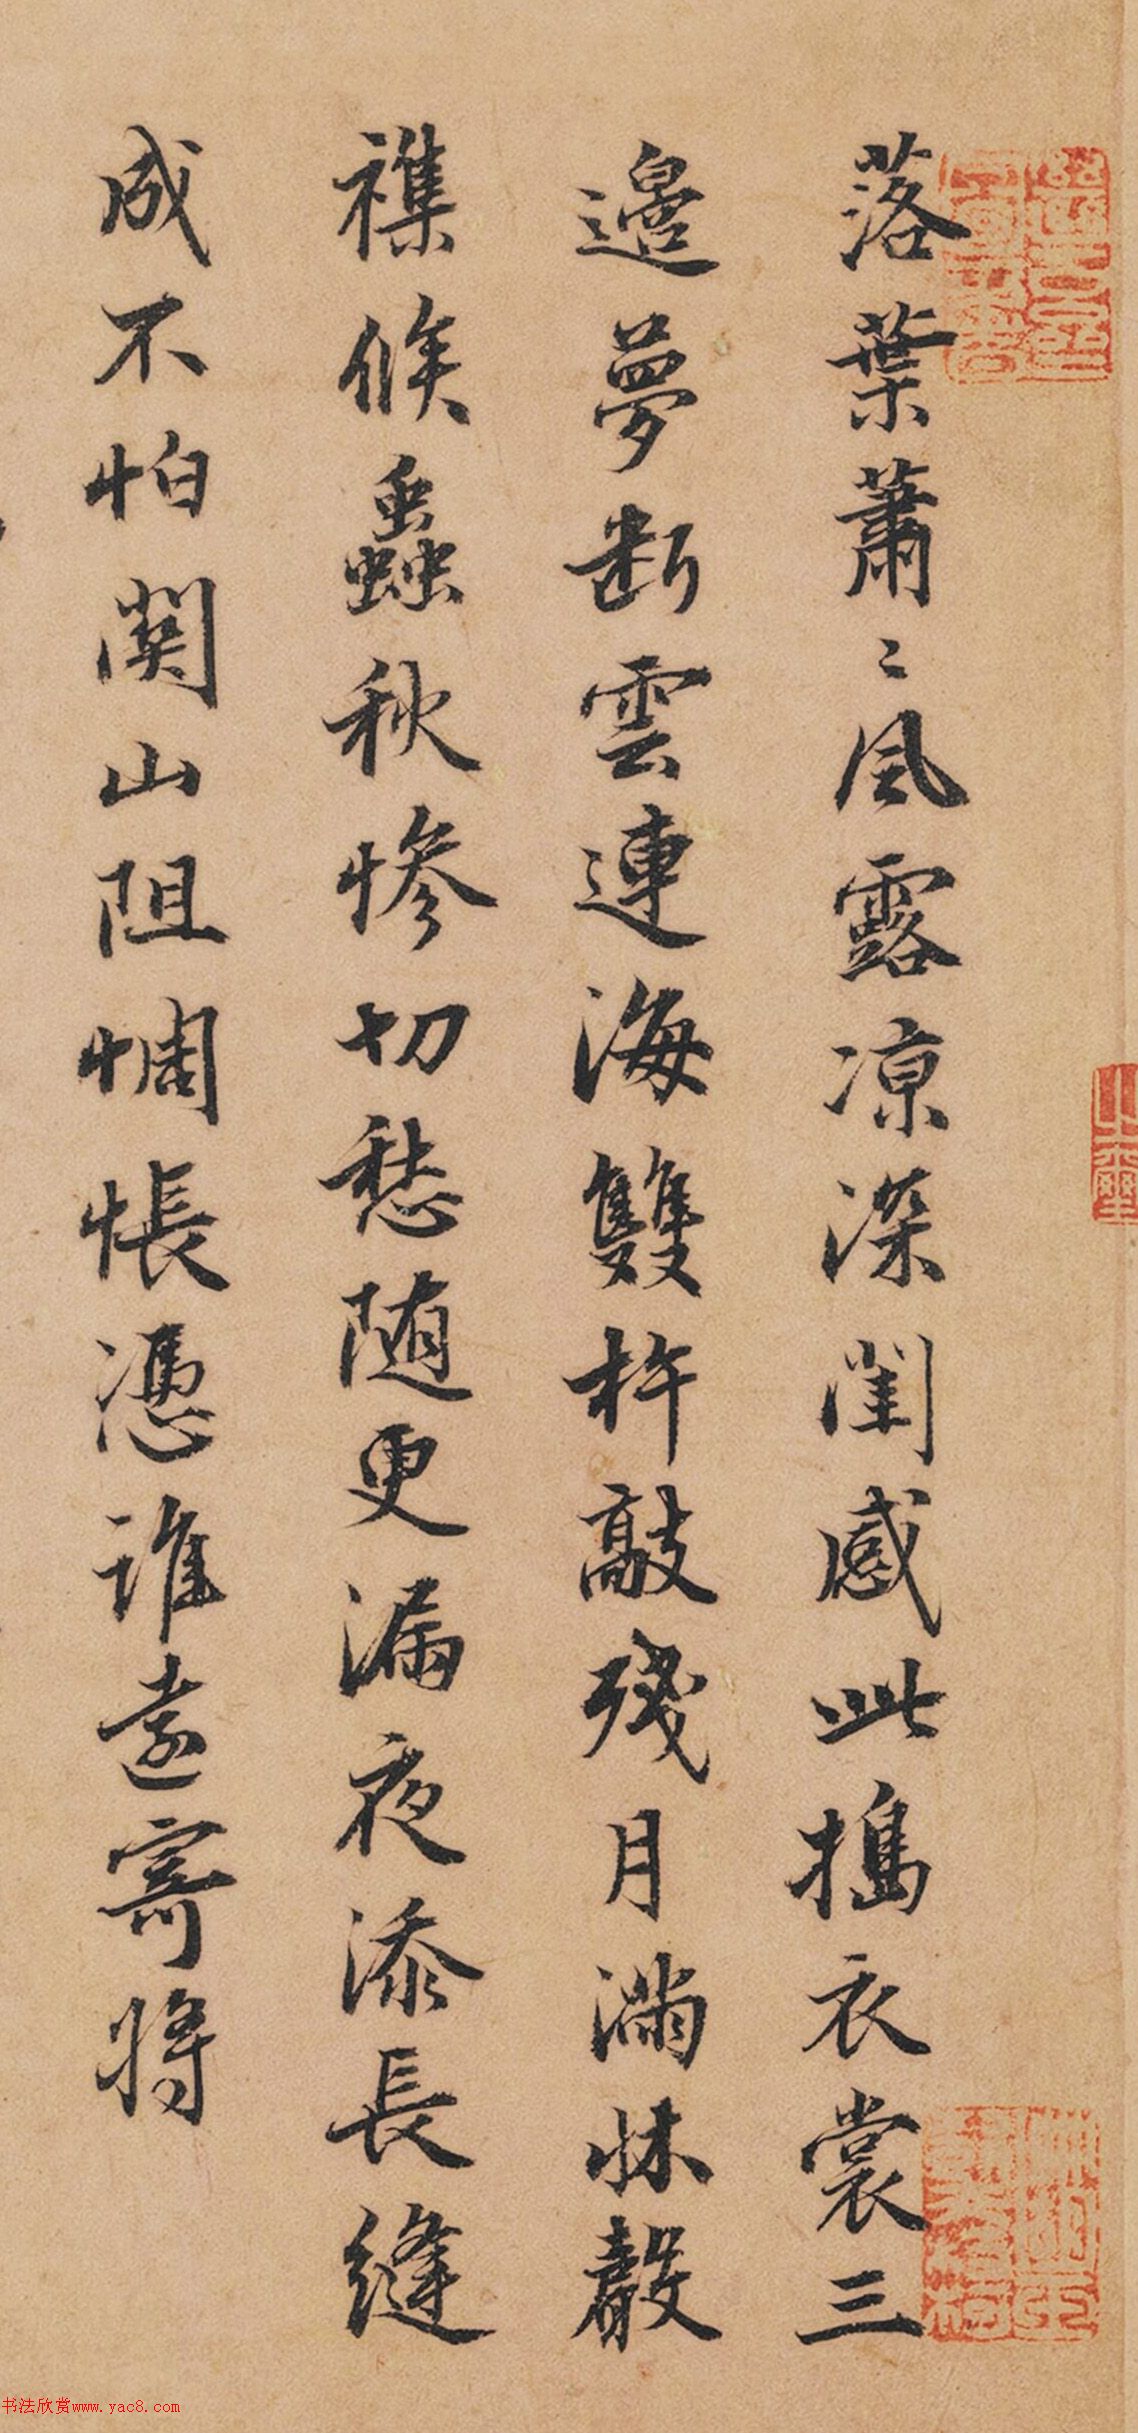 落葉蕭〻風露凉深閨感此搗衣裳三
邊夢断雲連海雙杵敲殘月滿牀聲
襍候蟲秋惨切愁随更漏夜添長縫
成不怕關山阻惆悵憑誰遠寄將
书法欣赏www.yac8.com